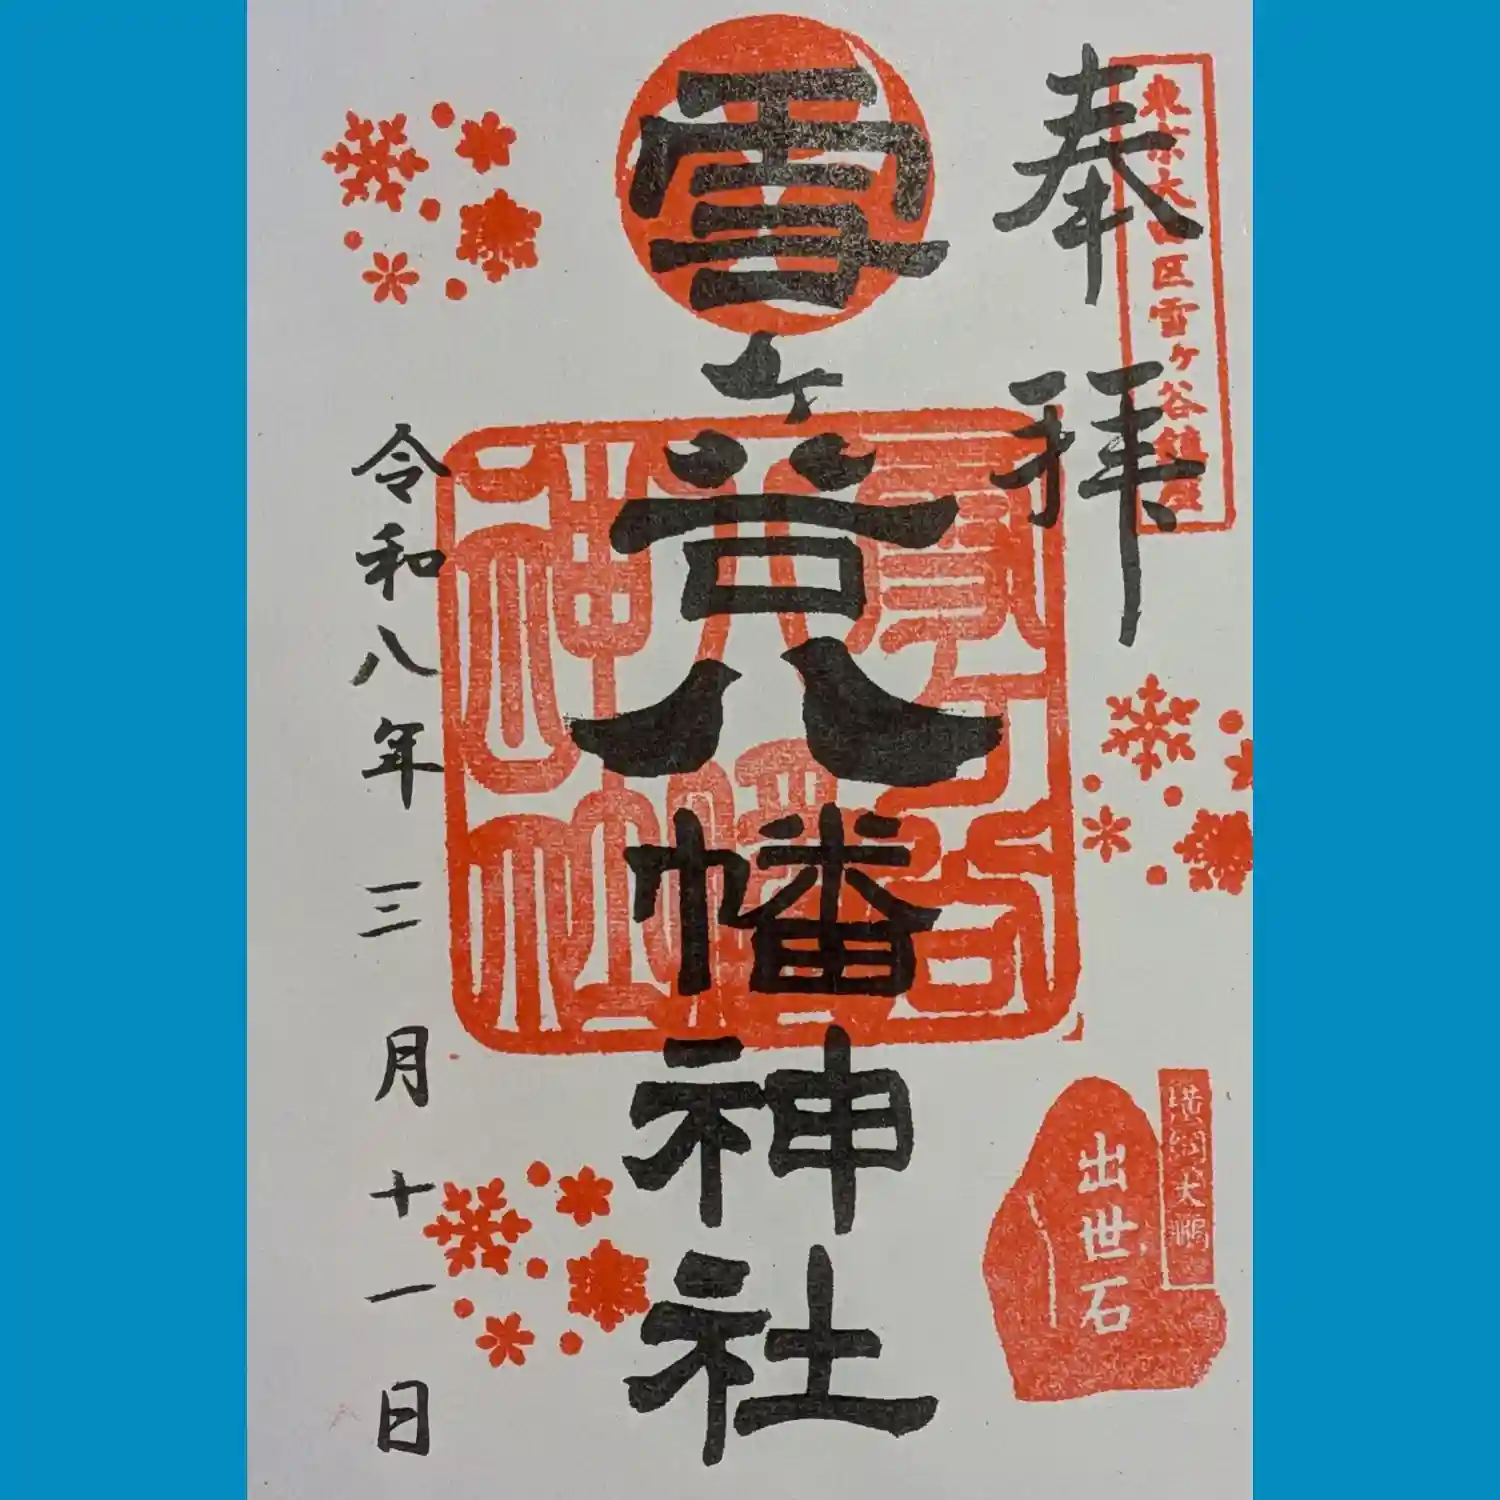 奉拝
東京大田区雪ヶ谷鎮座
雪ヶ谷八幡神社
雪ヶ谷八幡神社
出世石
横綱大鵬
令和八年三月十一日